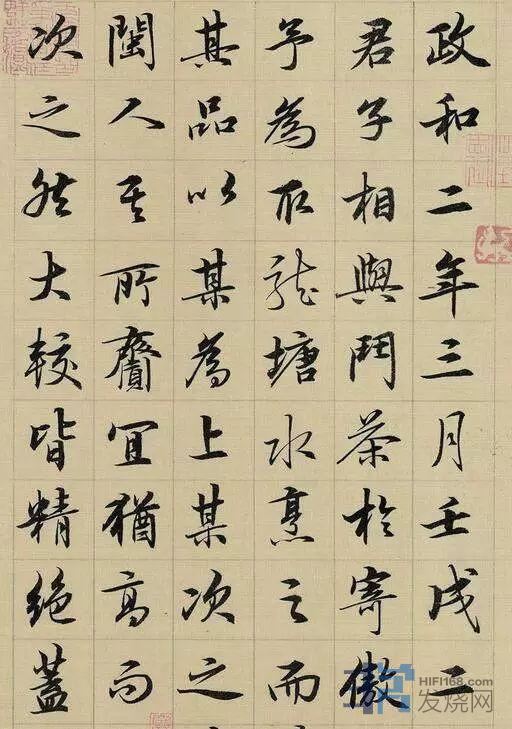 政和二年三月壬戌二
君子相與鬥茶於寄傲
予為取龍塘水烹之而
其品以某為上某次之
閩人其所齎宜猶高而
次之然大較皆精絕蓋
HIFI168.com
发烧网